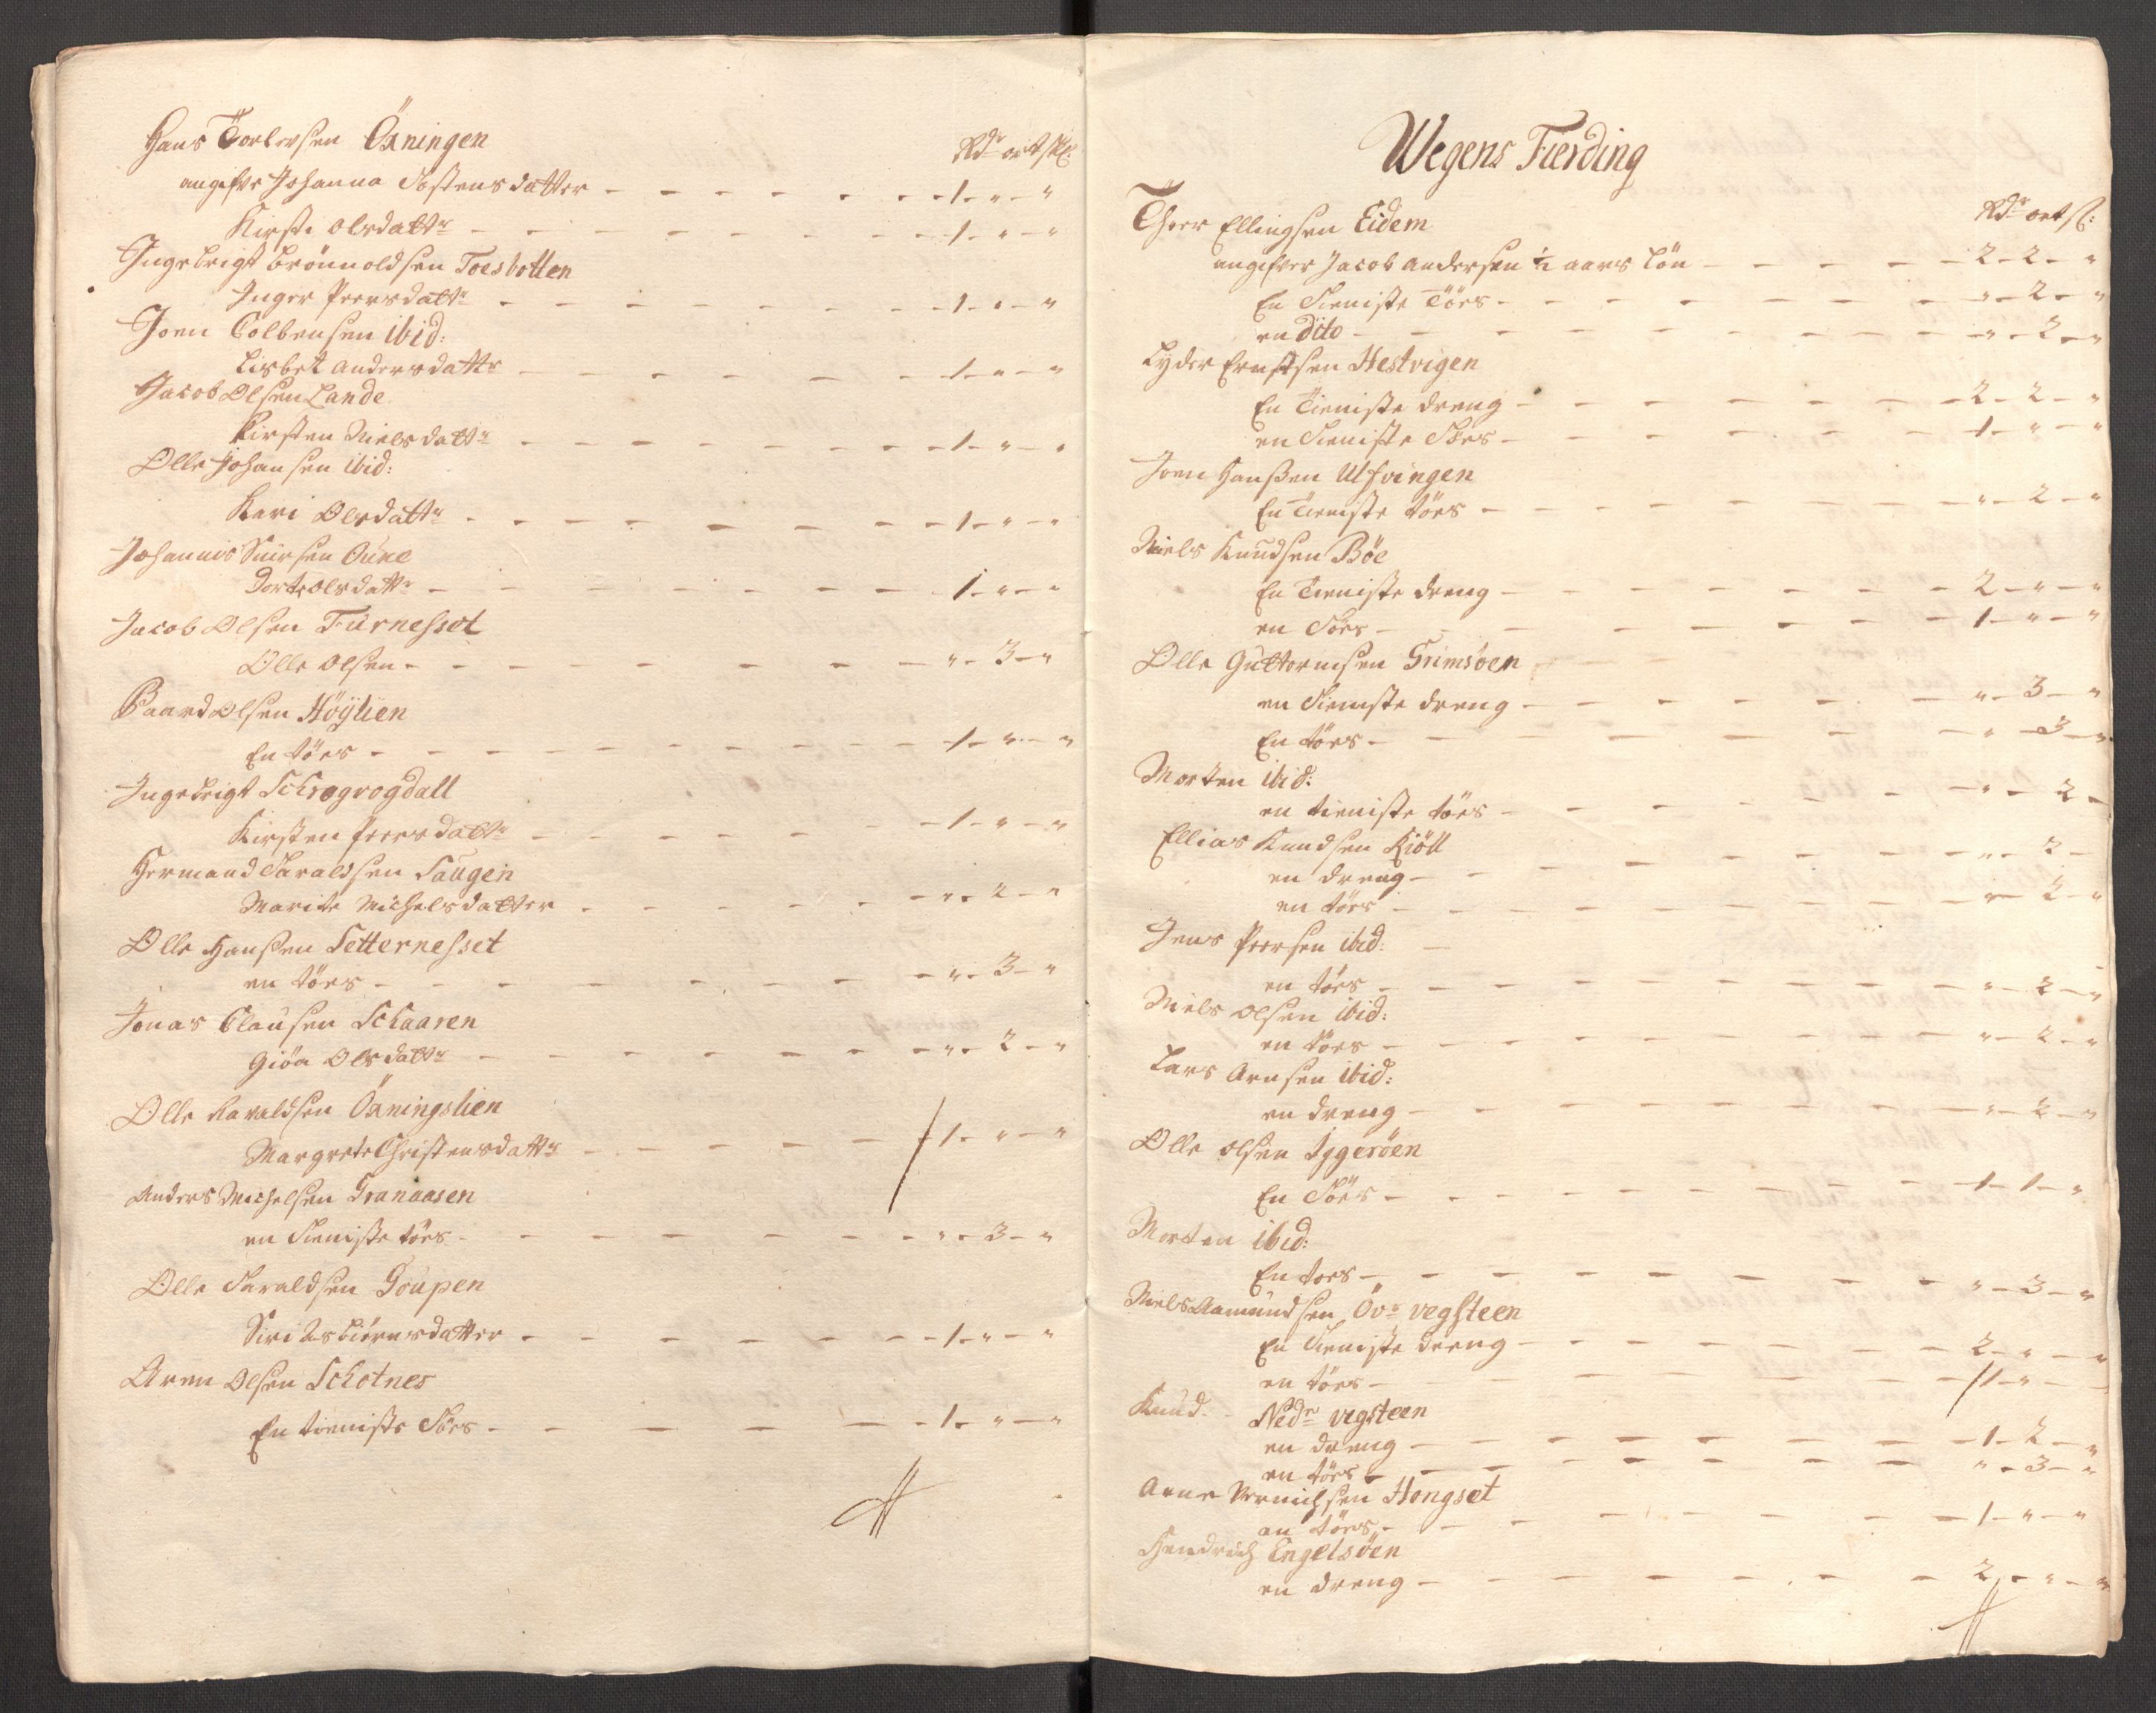 Hans Torlefsen Öxningen
Rdr ort skl:
angifve Johanna Tostens datter - - - - - - 1 - " - "
Kirsti olsdattr - - - - - - 1 - " - "
Ingebrigt Brönnoldsen Toesbotten
Inger Peersdattr - - - - - - 1 - " - "
Joen Colbensen ibid:
Lisbet andersdattr - - - - - - 1 - " - "
Jacob Olsen Lande
Kirsten Nielsdattr - - - - - - 1 - " - "
Olle Johansen ibid:
Kari Olsdattr - - - - - - 1 - " - "
Johannis Siursen Oune
Dorte olsdattr - - - - - - 1 - " - "
Jacob Olsen Furnesset
Olle olsen - - - - - - " - 3 - "
Baard olsen Höÿlien
En töes - - - - - - 1 - " - "
Ingebrigt Schrogvogdall
Kirsten Peersdattr - - - - - - 1 - " - "
Hermand Taraldsen Saugen
Marite Michelsdatter - - - - - - " - 2 - "
Olle Hanssen Setternesset
en töes - - - - - - " - 3 - "
Jonas Clausen Schaaren
Giöa Olsdattr - - - - - - " - 2 - "
Olle Haraldsen Öxningslien
Margrete Christensdattr - - - - - - 1 - " - "
Anders Michelsen Granaasen
en Tieniste töes - - - - - - " - 3 - "
Olle Taraldsen Goupen
Siri Asbiörnsdatter - - - - - - 1 - " - "
Aren Olsen Schotnes
En tieniste Töes - - - - - - 1 - " - "
Wegens Fierding
Rdr ort sl:
Theer Ellingsen Eidem
angifver Jacob andersen 1/2 aars Lön - - - - 2 - 2 - "
En Tieniste Töes - - - - - - " - 2 - "
en dito - - - - - - " - 2 - "
Lyder Ernstsen Hestvigen
En Tieniste dreng - - - - - - 2 - 2 - "
en Tieniste Töes - - - - - - 1 - " - "
Joen Hanssen Ulfvingen
En Tieniste töes - - - - - - " - 2 - "
Niels Knudsen Böe
En Tieniste dreng - - - - - - 2 - " - "
en Töes - - - - - - 1 - " - "
Olle Guttormsen Grimsöen
en Tieniste dreng - - - - - - " - 3 - "
En töes - - - - - - " - 3 - "
Morten ibid:
en tieniste töes - - - - - - " - 2 -
Ellias Knudsen Kiöll
en dreng - - - - - - " - 2 -
en töes - - - - - - " - 2 - "
Jens Peersen ibid: -
en töes - - - - - - " - 2 - "
Niels olsen ibid:
en töes - - - - - - " - 2 - "
Lars Arnsen ibid:
en dreng - - - - - - " - 2 - "
Olle olsen Iggeröen
En Töes - - - - - - 1 - 1 - "
Morten ibid:
En toes - - - - - - " - 3 - "
Niels Aamundsen Övr vegsteen
En Tieniste dreng - - - - - - 2 - " - "
en töes - - - - - - 1 - " - -
Knud Nedr vegsteen
en dreng - - - - - - 1 - 2 - "
en töes - - - - - - " - 3 - "
Arne Vernichsen Hongset
en töes - - - - - - 1 - " - "
Hendrich Engelsöen
en dreng - - - - - - 2 - " - "